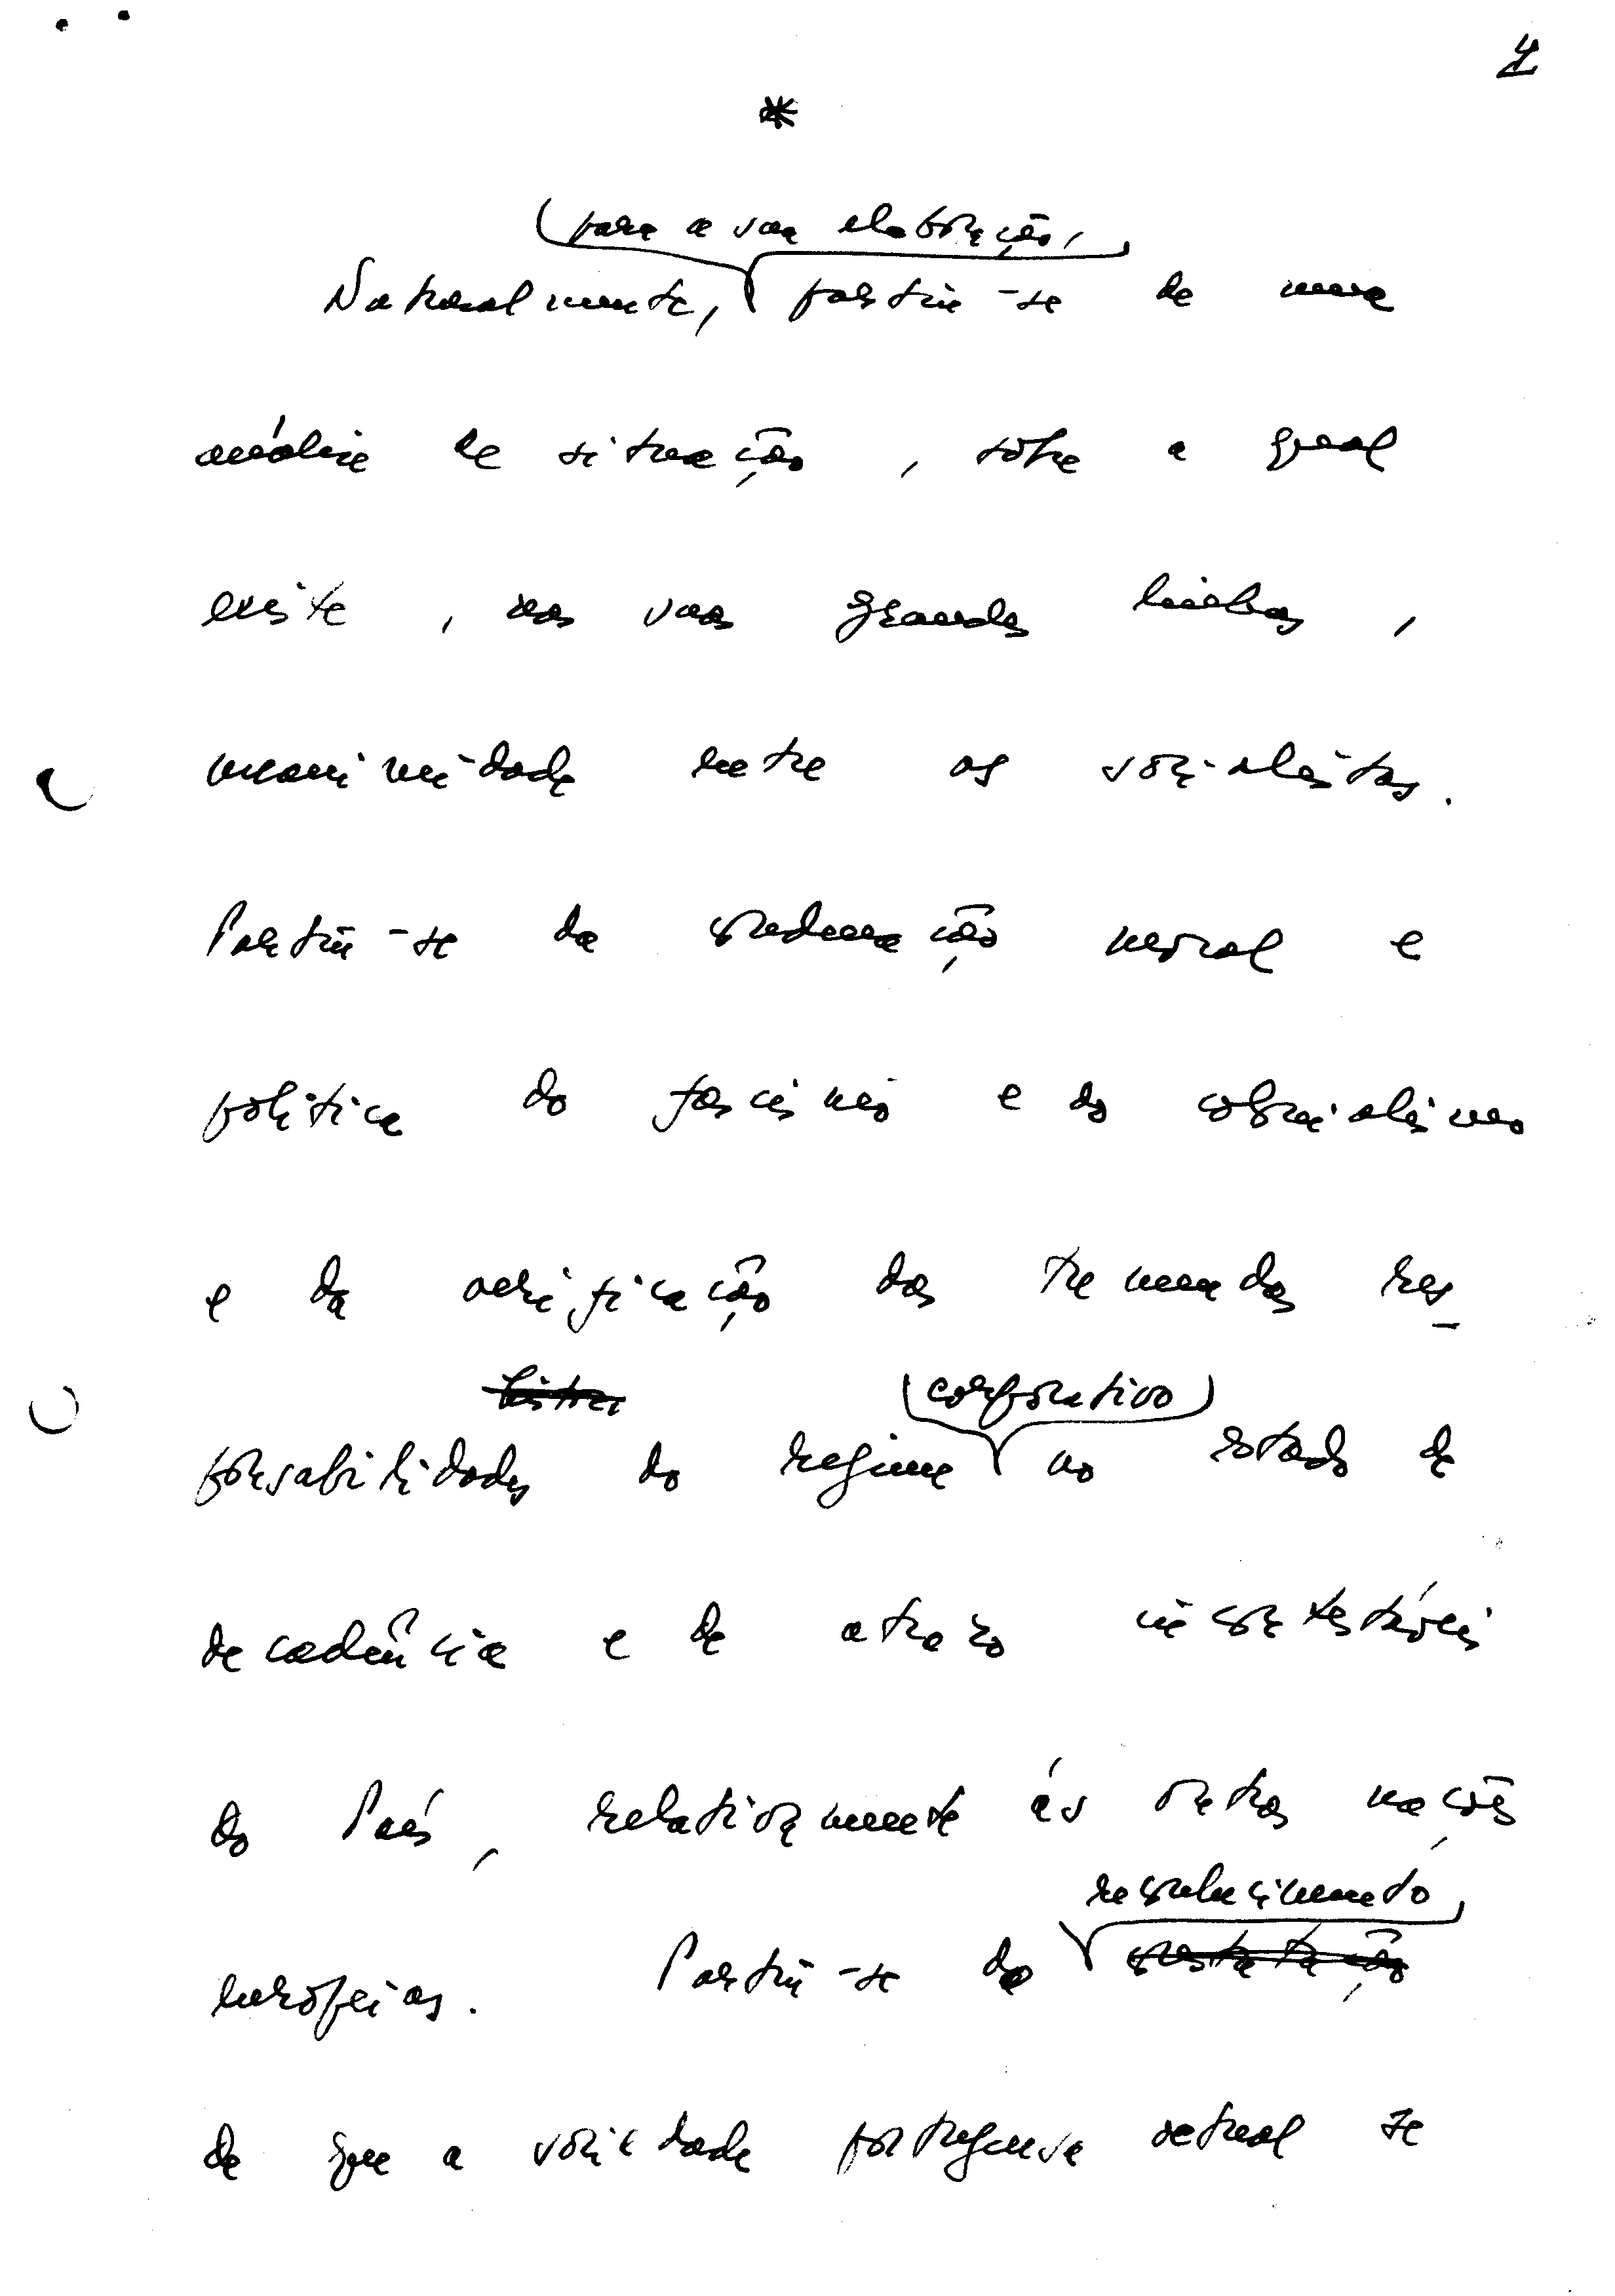 4
*
para a sua elaboração,
Naturalmente, partiu-se de uma
análise de situação, sobre a qual
existe, nas suas grandes linhas,
unanimidade entre os socialistas.
Partiu-se da condenação moral e
política do fascismo e do colonialismo
e da verificação das tremendas res-
corporativo
ponsabilidades do regime no estado de
decadência e de atrazo incontestáveis
do País, relativamente às outras nações
reconhecimento
europeias. Partiu-se do constatação
de que a sociedade portuguesa actual se